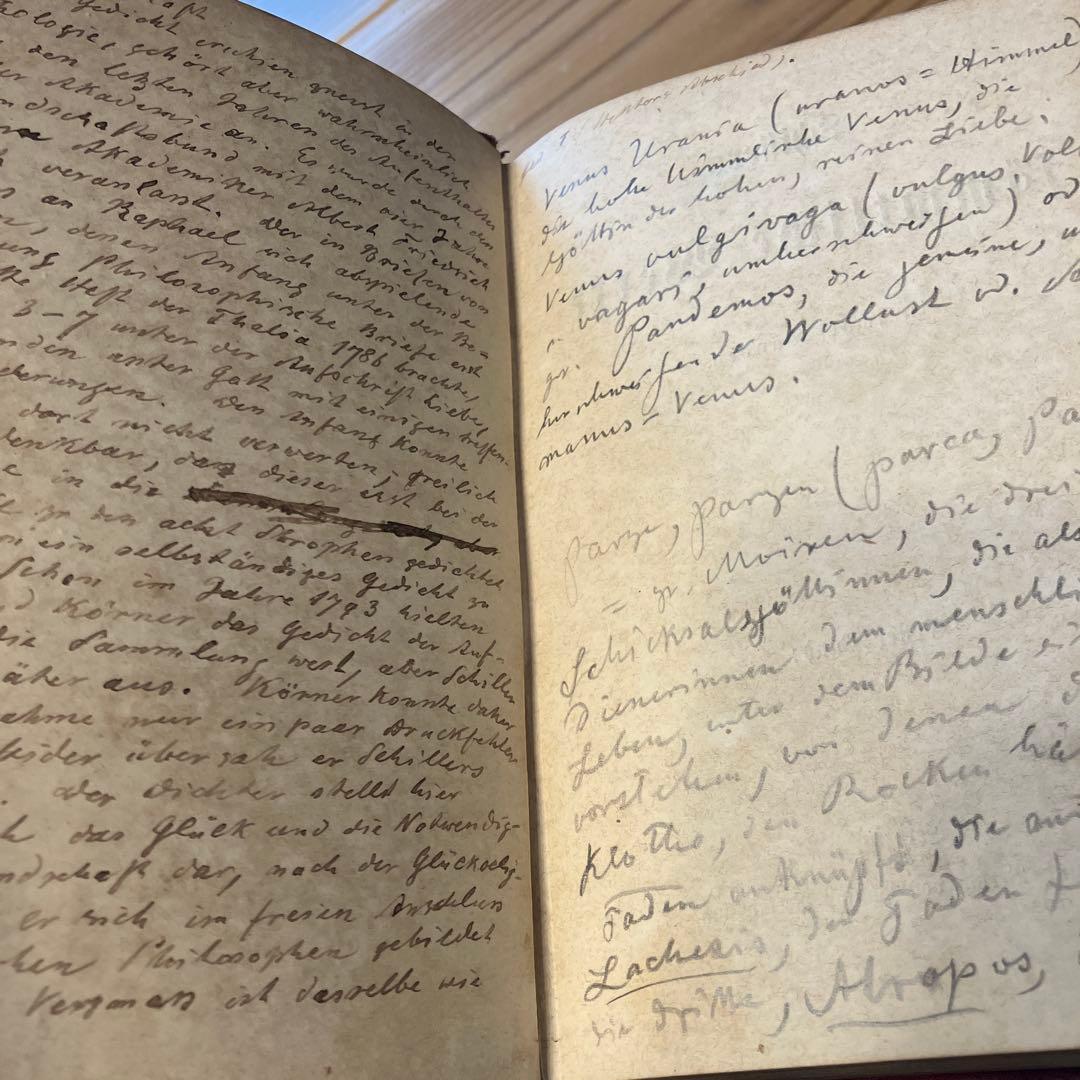 Gedicht erschien zuerst in der
ologie, gehört aber wahrscheinlich
den letzten Jahren des Aufenthaltes
der Akademie an. Es wurde durch den
ndschaftsbund mit dem vier Jahre
Akademiker Albert Friedrich
veranlasst. Der in Briefen von
s an Raphael sich abspielende
n, dessen Anfang unter der Be-
ung Philosophische Briefe erst
te Heft der Thalia 1786 brachte,
3-7 unter der Aufschrift Liebe,
nden unter Gott mit einigen treffen-
derungen. Den Anfang konnte
dort nicht verwerten, freilich
denkbar, dass dieser erst bei der
e in die
zu den acht Strophen gedichtet
m ein selbständiges Gedicht zu
Schon im Jahre 1793 hielten
d Körner das Gedicht der Auf-
die Sammlung wert, aber Schiller
äher aus. Körner konnte daher
ahme nur ein paar Druckfehler
eider übersah er Schillers
. Der Dichter stellt hier
h das Glück und die Notwendig-
ndschaft dar, nach der Glückselig-
er sich im freien Anschluss
hen Philosophen gebildet
Versmass ist dasselbe wie
Hektors Abschied.
Venus Urania (uranos = Himmel)
die hohe himmlische Venus, die
Göttin der hohen, reinen Liebe;
Venus vulgivaga (vulgus, Vol
vagari, umherschweifen) od
gr. Pandemos, die gemeine, u
herschweifender Wollust
manus - Venus.
Parze, Parzen (parca, Pa
= gr. Moiren, die drei
Schicksalsgöttinnen, die als
Dienerinnen dem menschli
Leben unter dem Bilde
vorstehen, von denen d
Klotho, den Rocken hä
Faden anknüpft, die an
Lachesis, den Faden
die dritte, Atropos,